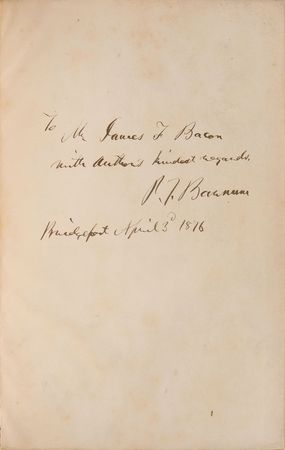 To Mr James F Bacon
with Author's kindest regards,
P. T. Barnum
Bridgeport April 3d 1876